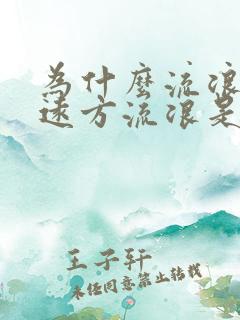 為什麼流浪
遠方流浪是
王子轩
未经同意禁止转载